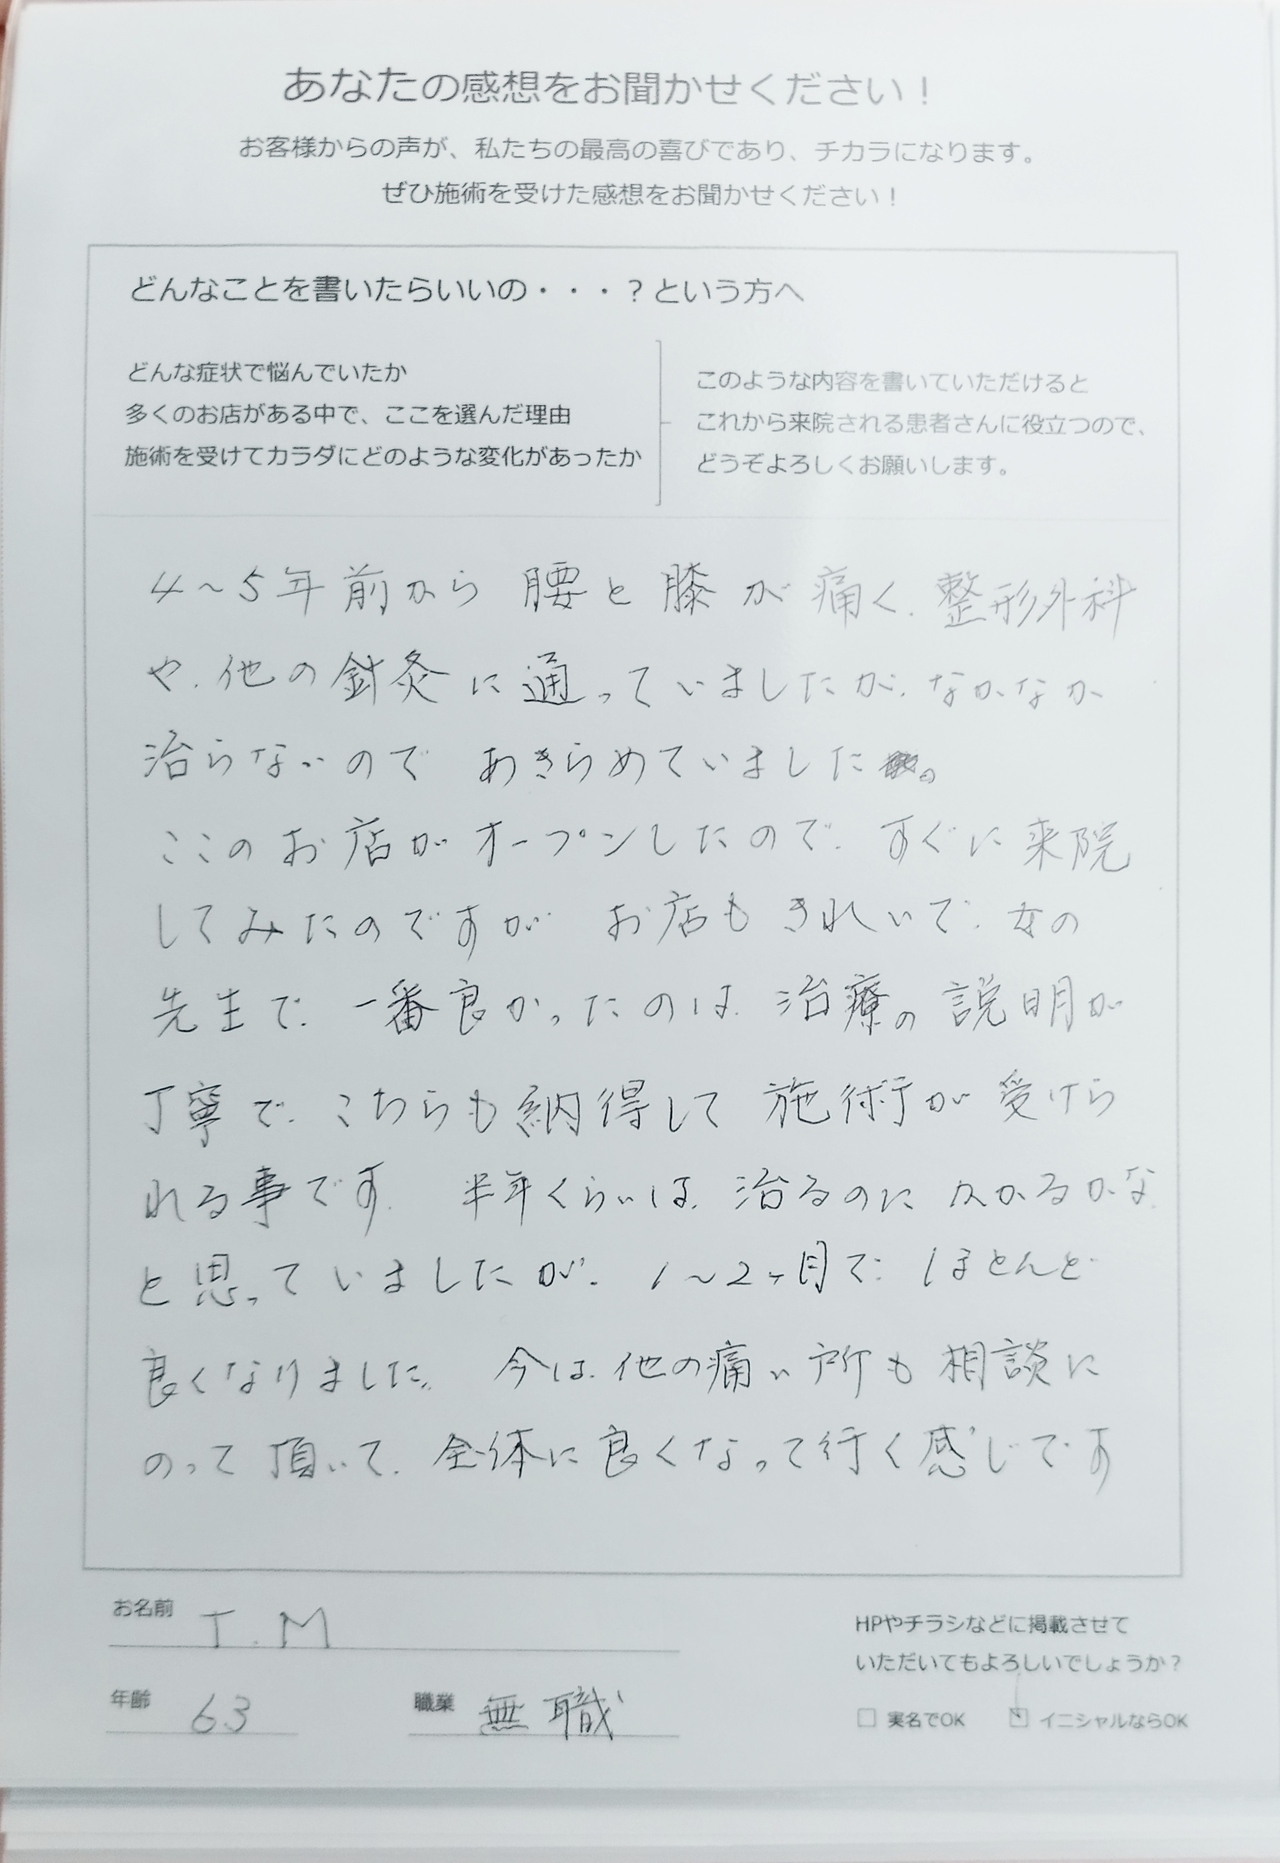 あなたの感想をお聞かせください！
お客様からの声が、私たちの最高の喜びであり、チカラになります。
ぜひ施術を受けた感想をお聞かせください！
どんなことを書いたらいいの・・・？という方へ
どんな症状で悩んでいたか
多くのお店がある中で、ここを選んだ理由
施術を受けてカラダにどのような変化があったか
このような内容を書いていただけると
これから来院される患者さんに役立つので、
どうぞよろしくお願いします。
4～5年前から 腰と膝が痛く、整形外科
や、他の針灸に通っていましたが、なかなか
治らないので あきらめていました。
ここのお店がオープンしたので、すぐに来院
してみたのですが お店もきれいで、女の
先生で、一番良かったのは、治療の説明が
丁寧で、こちらも納得して 施術が受けら
れる事です。 半年くらいは、治るのにかかるかな
と思っていましたが、1～2ヶ月で、ほとんど
良くなりました。 今は、他の痛い所も相談に
のって頂いて、全体に良くなって行く感じです
お名前 T.M
年齢 63
職業 無職
HPやチラシなどに掲載させて
いただいてもよろしいでしょうか？
実名でOK
イニシャルならOK